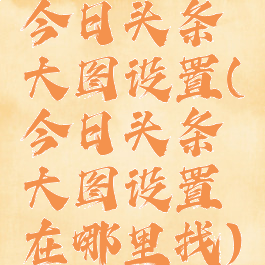 今日头条
大图设置(
今日头条
大图设置
在哪里找)